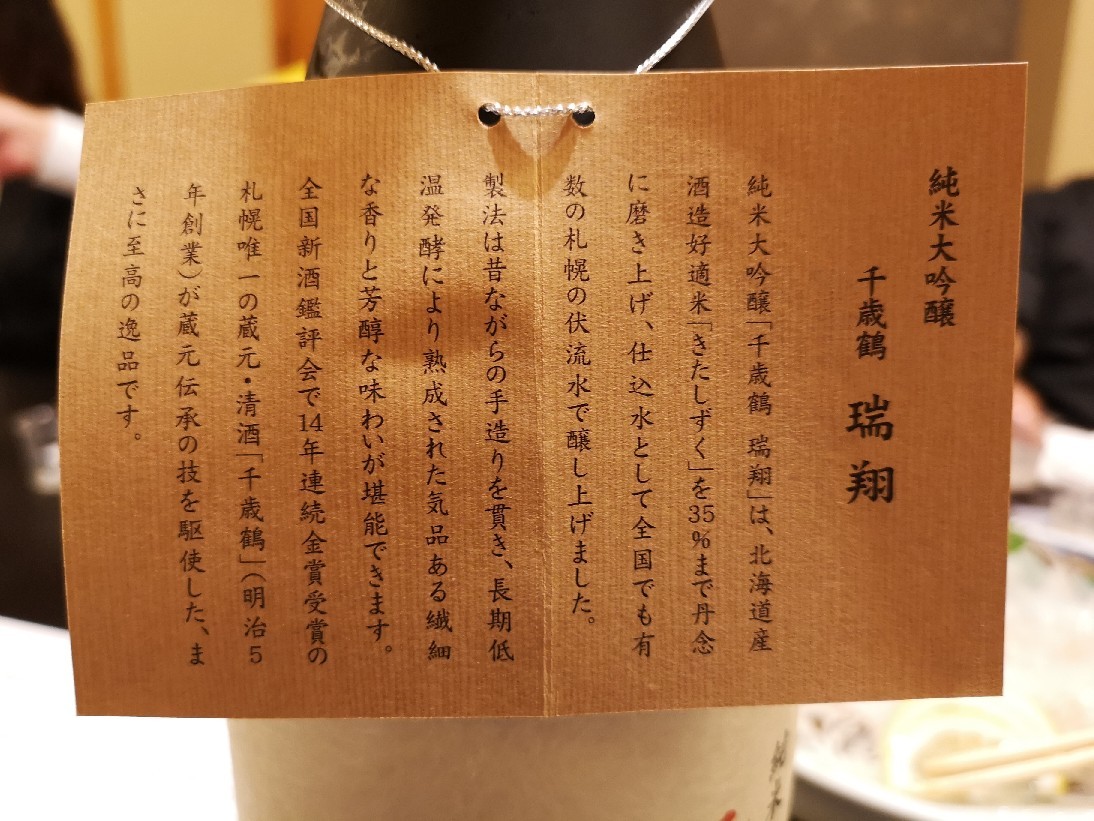 純米大吟醸
千歳鶴 瑞翔
純米大吟醸「千歳鶴 瑞翔」は、北海道産
酒造好適米「きたしずく」を35％まで丹念
に磨き上げ、仕込水として全国でも有
数の札幌の伏流水で醸し上げました。
製法は昔ながらの手造りを貫き、長期低
温発酵により熟成された気品ある繊細
な香りと芳醇な味わいが堪能できます。
全国新酒鑑評会で14年連続金賞受賞の
札幌唯一の蔵元・清酒「千歳鶴」（明治5
年創業）が蔵元伝承の技を駆使した、ま
さに至高の逸品です。
純米